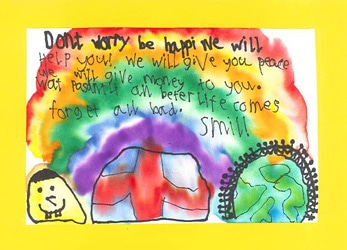 Dont worry be happi We will
HELP you! we will give you peace
we will give money to you.
wat all beter life comes
forget all bad.
Smill